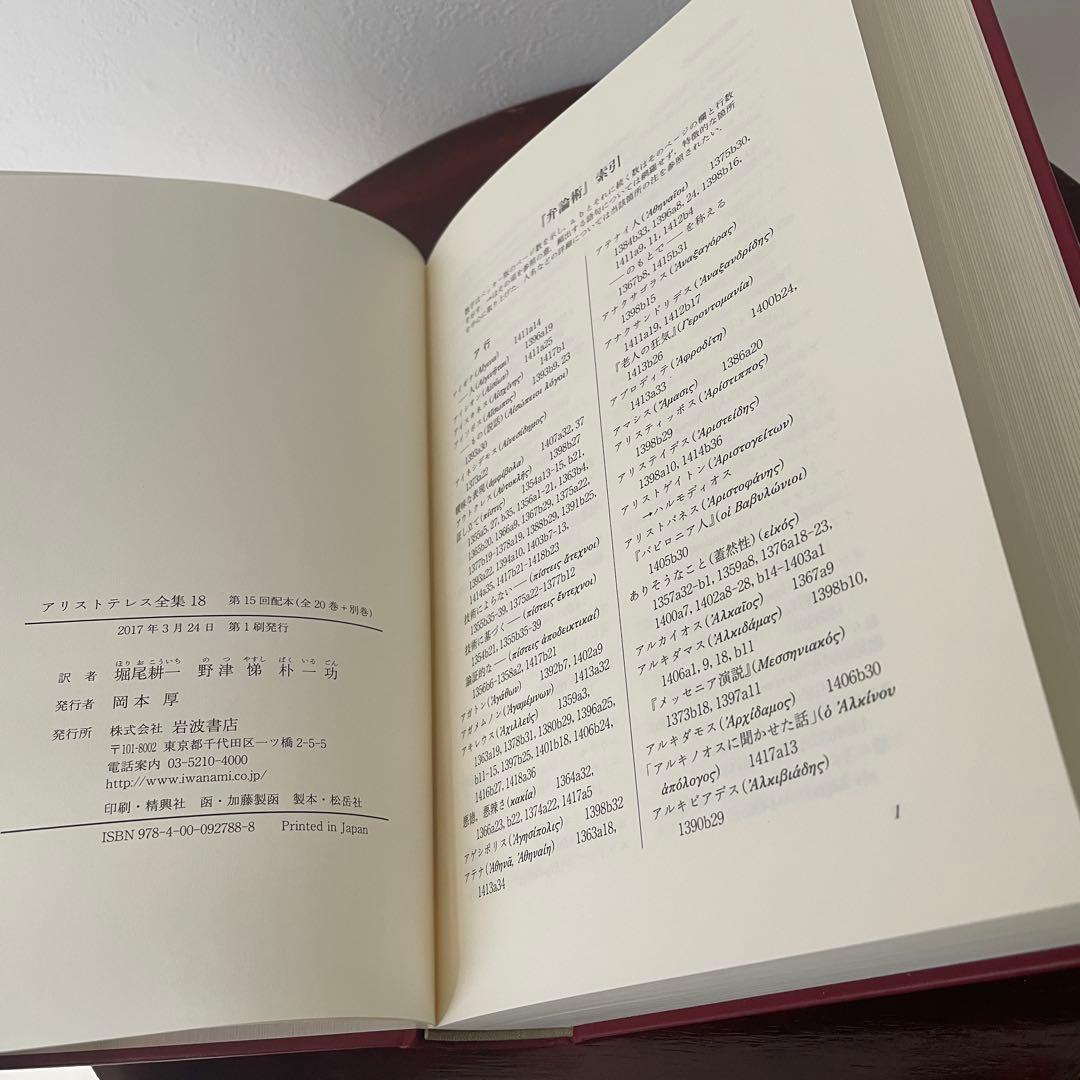 アリストテレス全集 18 第15回配本(全20巻+別巻)
2017年3月24日 第1刷発行
ほりおこういち のつ やすし ぱく いるごん
訳者 堀尾耕一 野津 悌 朴 一功
発行者 岡本 厚
発行所 株式会社 岩波書店
〒101-8002 東京都千代田区一ツ橋2-5-5
電話案内 03-5210-4000
http://www.iwanami.co.jp/
印刷・精興社 函・加藤製函 製本・松岳社
ISBN 978-4-00-092788-8 Printed in Japan
『弁論術』索引
数字はベッカー版のページ数を示し,a, bとそれに続く数はそのページの欄と行数
を示す.→はその項を参照の意.頻出する語句については網羅せず,特徴的な箇所
を中心に取り上げた.人名などの詳細については当該箇所の注を参照されたい.
ア 行
アイギナ(Αἴγινα) 1411a14
アイギナ人(Αἰγινῆται) 1396a19
アイシオン(Αἰσίων) 1411a25
アイスキネス(Αἰσχίνης) 1417b1
アイソポス(Αἴσωπος) 1393b9, 23
——もの(説話)(Αἰσώπειοι λόγοι)
1393a30
アイネシデモス(Αἰνεσίδημος)
1373a22
曖昧な表現(ἀμφίβολα) 1407a32, 37
アウトクレス(Αὐτοκλῆς) 1398b27
証し立て(πίστις) 1354a13-15, b21,
1355a5, 27, b35, 1356a1-21, 1363b4,
1365b20, 1366a9, 1367b29, 1375a22,
1377b19-1378a19, 1388b29, 1391b25,
1393a22, 1394a10, 1403b7-13,
1414a35, 1417b21-1418b23
技術によらない——(πίστεις ἄτεχνοι)
1355b35-39, 1375a22-1377b12
技術に基づく——(πίστεις ἔντεχνοι)
1354b21, 1355b35-39
論証的な——(πίστεις ἀποδεικτικαί)
1356b6-1358a2, 1417b21
アガトン(Ἀγάθων) 1392b7, 1402a9
アガメムノン(Ἀγαμέμνων) 1413a32
アキレウス(Ἀχιλλεύς) 1359a3,
1363a19, 1378b31, 1380b29, 1396a25,
b11-15, 1397b25, 1401b18, 1406b24,
1416b27, 1418a36
悪徳,悪辣さ(κακία) 1364a32,
1366a23, b22, 1374a22, 1417a5
アゲシポリス(Ἀγησίπολις) 1398b32
アテナ(Ἀθηνᾶ, Ἀθηναίη) 1363a18,
1413a34
アテナイ人(Ἀθηναῖοι) 1375b30,
1384b33, 1396a8, 24, 1398b16,
1411a9, 11, 1412b4
——のもとで——を称える
1367b8, 1415b31
アナクサゴラス(Ἀναξαγόρας)
1398b15
アナクサンドリデス(Ἀναξανδρίδης)
1411a19, 1412b17
『老人の狂気』(Γεροντομανία)
1413b26 1400b24,
アプロディテ(Ἀφροδίτη)
1413a33
アマシス(Ἄμασις) 1386a20
アリスティッポス(Ἀρίστιππος)
1398b29
アリステイデス(Ἀριστείδης)
1398a10, 1414b36
アリストゲイトン(Ἀριστογείτων)
→ハルモディオス
アリストパネス(Ἀριστοφάνης)
『バビロニア人』(οἱ Βαβυλώνιοι)
1405b30
ありそうなこと(蓋然性)(εἰκός)
1357a32-b1, 1359a8, 1376a18-23,
1400a7, 1402a8-28, b14-1403a1
アルカイオス(Ἀλκαῖος) 1367a9
アルキダマス(Ἀλκιδάμας) 1398b10,
1406a1, 9, 18, b11
『メッセニア演説』(Μεσσηνιακός)
1373b18, 1397a11
アルキダモス(Ἀρχίδαμος) 1406b30
「アルキノオスに聞かせた話」(ὁ Ἀλκίνου
ἀπόλογος) 1417a13
アルキビアデス(Ἀλκιβιάδης)
1390b29
1